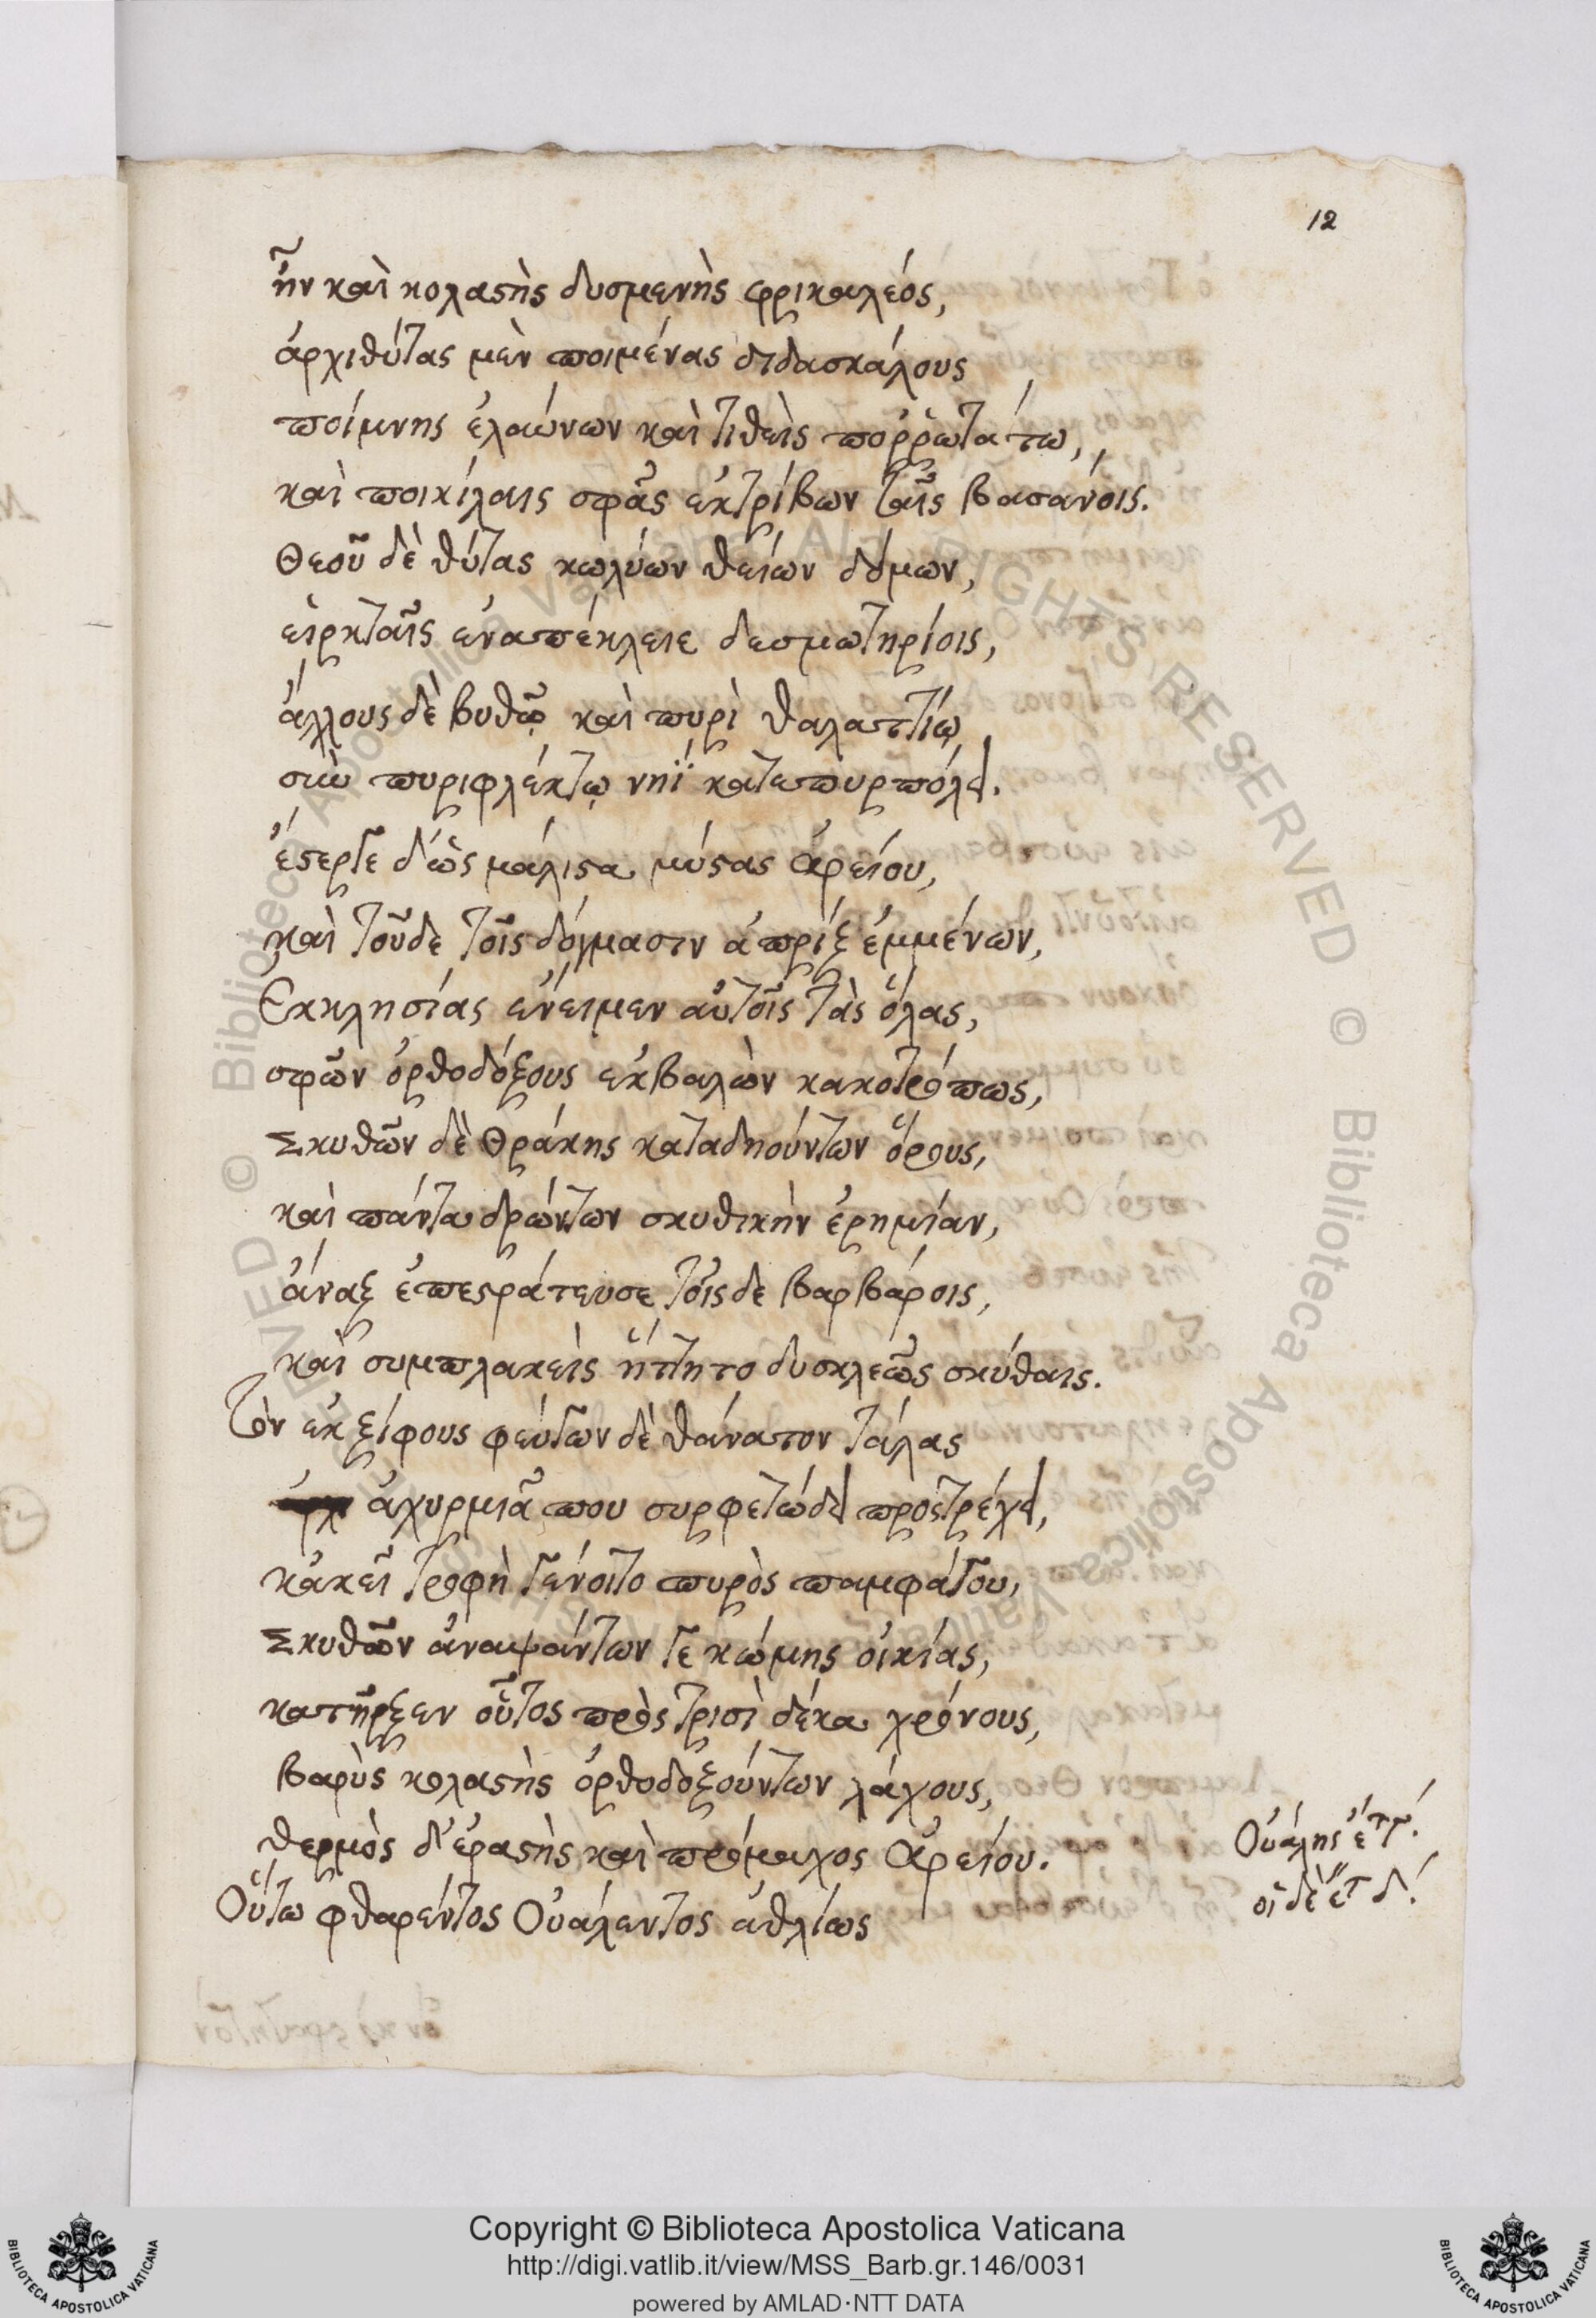 12
ἦν καὶ κολαστὴς δυσμενὴς φρικαλέος,
ἀρχιθύτας μὲν ποιμένας διδασκάλους
ποίμνης ἐλαύνων καὶ τιθεὶς ποῤῥωτάτω,
καὶ ποικίλαις σφᾶς ἐκτρίβων ταῖς βασάνοις.
Θεοῦ δὲ θύτας κωλύων θείων δόμων,
εἱρκταῖς ἐναπέκλειε δεσμωτηρίοις,
ἄλλους δὲ βυθῷ καὶ πυρὶ θαλαττίῳ
σὺν πυριφλέκτῳ νηῒ κατεπυρπόλει.
ἔστεργε δ' ὡς μάλιστα μύστας Ἀρείου,
καὶ τοῦδε τοῖς δόγμασιν ἀπρὶξ ἐμμένων,
Ἐκκλησίας ἔνειμεν αὐτοῖς τὰς ὅλας,
σφῶν ὀρθοδόξους ἐκβαλὼν κακοτρόπως,
Σκυθῶν δὲ Θράκης καταδηούντων ὅρους,
καὶ πάντα δρώντων σκυθικὴν ἐρημίαν,
ἄναξ ἐπεστράτευσε τοῖς δε βαρβάροις,
καὶ συμπλακεὶς ἥττητο δυσκλεῶς σκύθαις.
τὸν ἐκ ξίφους φεύγων δὲ θάνατον τάλας
ἀχυρμιᾷ που συρφετώδει προστρέχει,
κἀκεῖ τροφὴ γένοιτο πυρὸς παμφάγου,
Σκυθῶν ἀναψάντων γε κώμης οἰκίας,
κατῆρξεν οὗτος πρὸς τρισὶ δέκα χρόνους,
βαρὺς κολαστὴς ὀρθοδοξούντων λάχους,
θερμὸς δ' ἐραστὴς καὶ πρόμαχος Ἀρείου.
Οὕτω φθαρέντος Οὐάλεντος ἀθλίως
Οὐάλης ἔτ ιγ'.
οἱ δὲ ἔτ δ'.
Copyright © Biblioteca Apostolica Vaticana
http://digi.vatlib.it/view/MSS_Barb.gr.146/0031
powered by AMLAD·NTT DATA